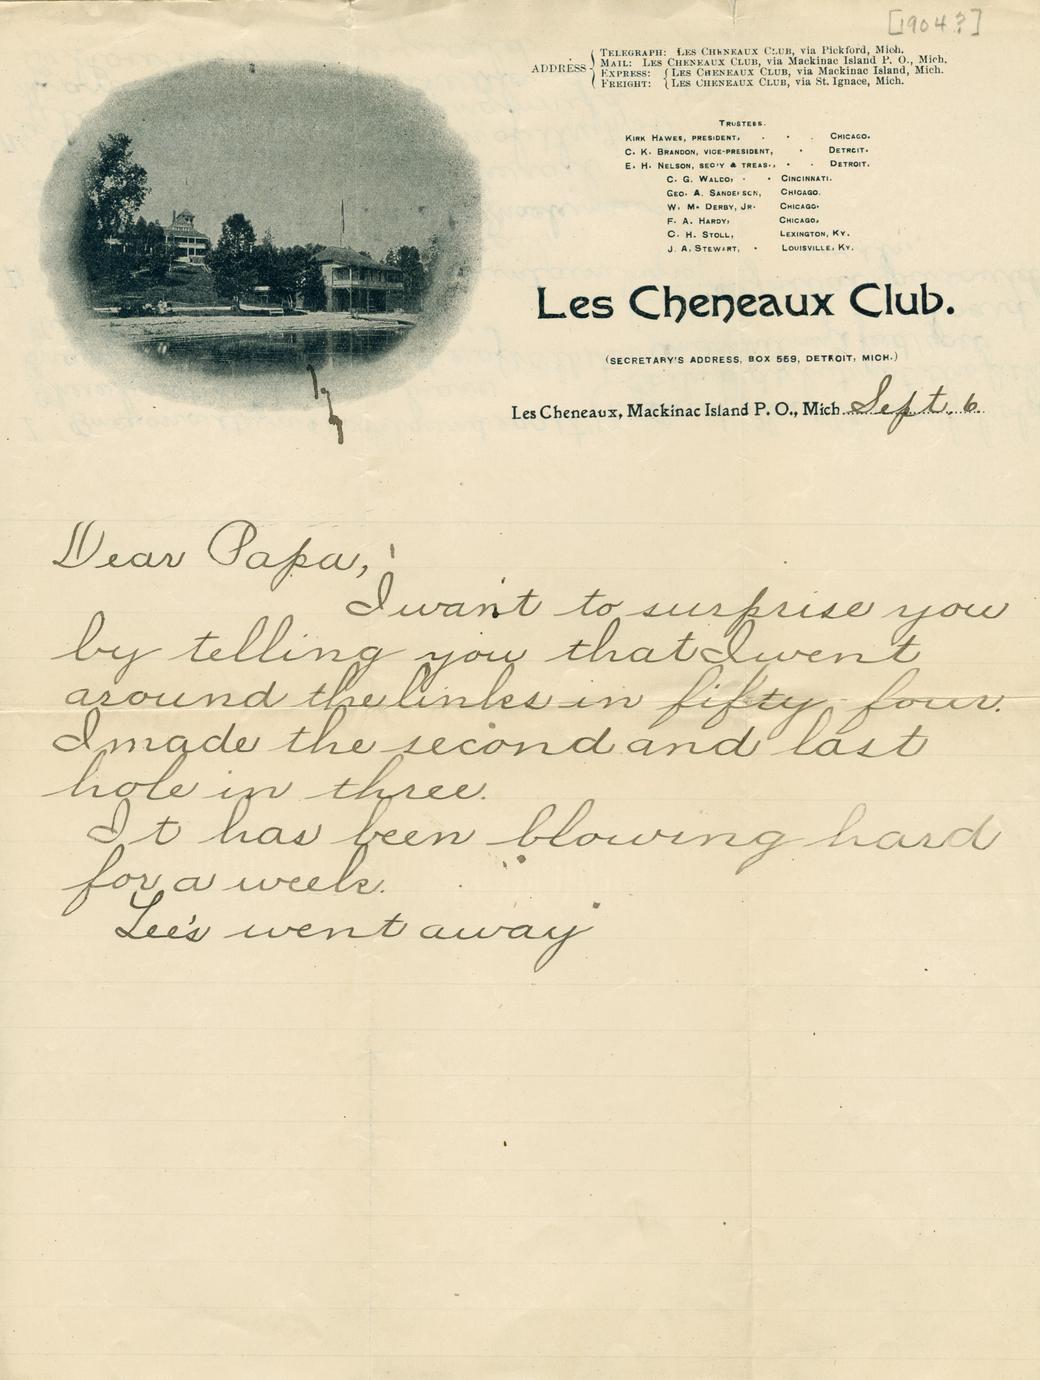 [1904?]
ADDRESS
TELEGRAPH: LES CHENEAUX CLUB, via Pickford, Mich.
MAIL: LES CHENEAUX CLUB, via Mackinac Island P. O., Mich.
EXPRESS: LES CHENEAUX CLUB, via Mackinac Island, Mich.
FREIGHT: LES CHENEAUX CLUB, via St. Ignace, Mich.
TRUSTEES.
KIRK HAWES, PRESIDENT, CHICAGO.
C. K. BRANDON, VICE-PRESIDENT, DETROIT.
E. H. NELSON, SEC'Y & TREAS., DETROIT.
C. G. WALDO, CINCINNATI.
GEO. A. SANDERSON, CHICAGO.
W. M. DERBY, JR. CHICAGO.
F. A. HARDY, CHICAGO,
C. H. STOLL, LEXINGTON, KY.
J. A. STEWART, LOUISVILLE, KY.
Les Cheneaux Club.
(SECRETARY'S ADDRESS, BOX 559, DETROIT, MICH.)
Les Cheneaux, Mackinac Island P. O., Mich. Sept. 6.
Dear Papa,
I want to surprise you
by telling you that I went
around the links in fifty-four.
I made the second and last
hole in three.
It has been blowing hard
for a week.
Lee's went away